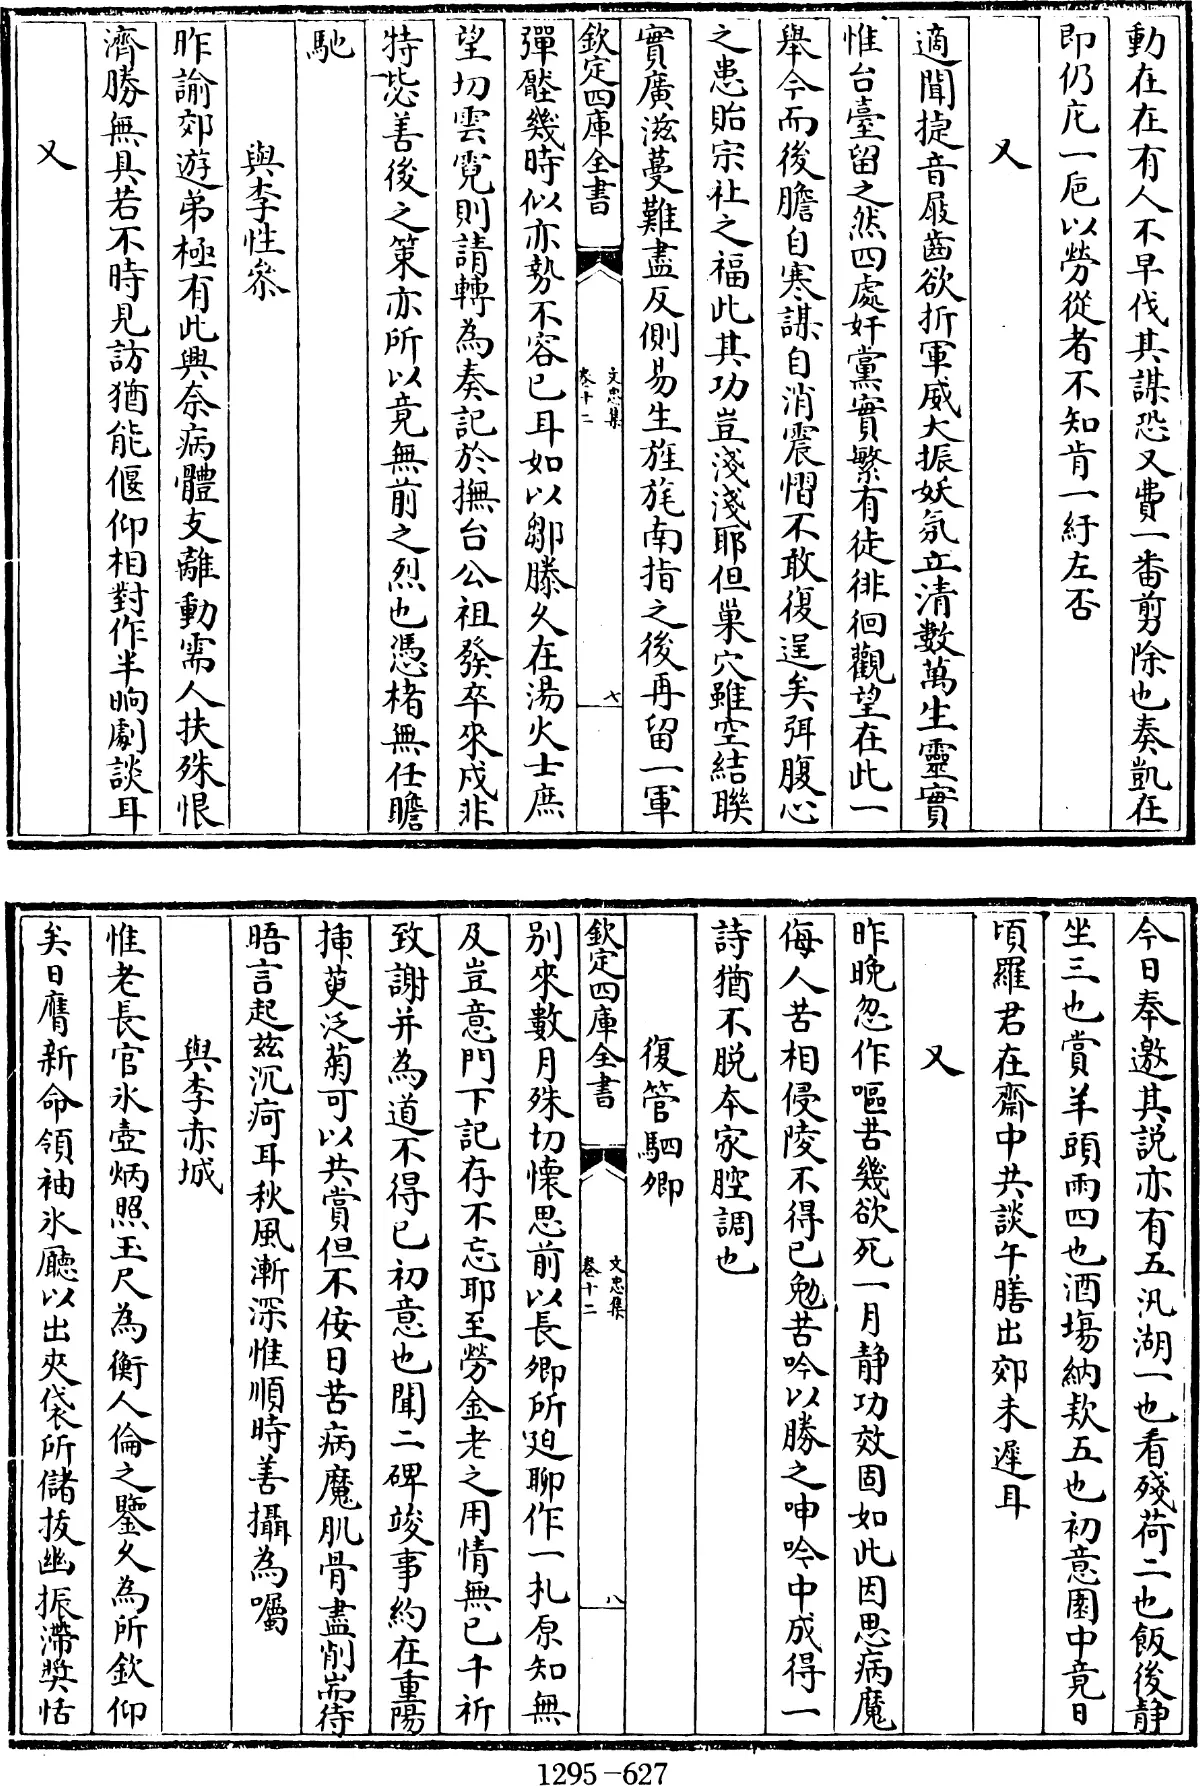 動在在有人不早伐其謀恐又費一番剪除也奏凱在
即仍庀一卮以勞從者不知肯一紆左否
又
適聞捷音屐齒欲折軍威大振妖氛立清數萬生靈實
惟台臺留之然四處奸黨實繁有徒徘徊觀望在此一
舉今而後膽自寒謀自消震慴不敢復逞矣弭腹心
之患貽宗社之福此其功豈淺淺耶但巢穴雖空結聯
實廣滋蔓難盡反側易生旌旄南指之後再留一軍
欽定四庫全書
文忠集
卷十二
七
彈壓幾時似亦勢不容已耳如以鄒滕久在湯火士庶
望切雲霓則請轉為奏記於撫台公祖發卒來戍非
特毖善後之策亦所以竟無前之烈也憑楮無任瞻
馳
與李性叅
昨諭郊遊弟極有此興奈病體支離動需人扶殊恨
濟勝無具若不時見訪猶能偃仰相對作半晌劇談耳
又
今日奉邀其説亦有五汎湖一也看殘荷二也飯後靜
坐三也賞羊頭雨四也酒塲納欵五也初意園中竟日
頃羅君在齋中共談午膳出郊未遲耳
又
昨晚忽作嘔苦幾欲死一月静功效固如此因思病魔
侮人苦相侵陵不得已勉苦吟以勝之呻吟中成得一
詩猶不脱本家腔調也
復管駟卿
欽定四庫全書
文忠集
卷十二
八
别來數月殊切懷思前以長卿所廹聊作一札原知無
及豈意門下記存不忘耶至勞金老之用情無已千祈
致謝并為道不得已初意也聞二碑竣事約在重陽
挿萸泛菊可以共賞但不佞日苦病魔肌骨盡削耑待
晤言起兹沉疴耳秋風漸深惟順時善攝為囑
與李赤城
惟老長官氷壺炳照玉尺為衡人倫之鑒久為所欽仰
矣日膺新命領袖氷廳以出夾袋所儲拔幽振滯奬恬
1295-627